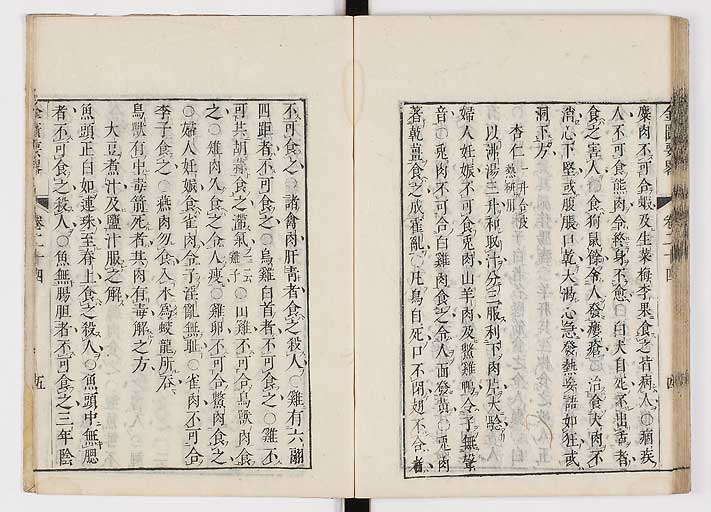 麋肉不可合蝦及生菜梅李果食之皆病人○痼疾
人不可食熊肉令終身不愈○白犬自死不出舌者
食之害人○食狗鼠餘令人發瘻瘡○治食犬肉不
消心下堅或腹脹口乾大渴心急發熱妄語如狂或
洞下方
○杏仁 一升合皮熟研用
以沸湯三升和取汁分三服利下肉片大驗
婦人妊娠不可食兔肉山羊肉及鱉雞鴨令子無聲
音○兎肉不可合白雞肉食之令人面發黄○兎肉
著乾薑食之成霍亂○凡鳥自死口不閉翅不合者
金匱要畧
卷二十四
四
不可食之○諸禽肉肝青者食之殺人○雞有六翮
四距者不可食之○烏雞白首者不可食之○雞不
可共胡蒜食之滯氣 一云雞子○山雞不可合鳥獸肉食
之○雉肉久食之令人瘦○雞卵不可合鱉肉食之
○婦人妊娠食雀肉令子淫亂無耻○雀肉不可合
李子食之○燕肉勿食入水爲蛟龍所呑
鳥獸有中毒箭死者其肉有毒解之方
大豆煮汁及鹽汁服之解
魚頭正白如連珠至脊上食之殺人○魚頭中無腮
者不可食之殺人○魚無腸胆者不可食之三年陰
金匱要畧
卷二十四
五